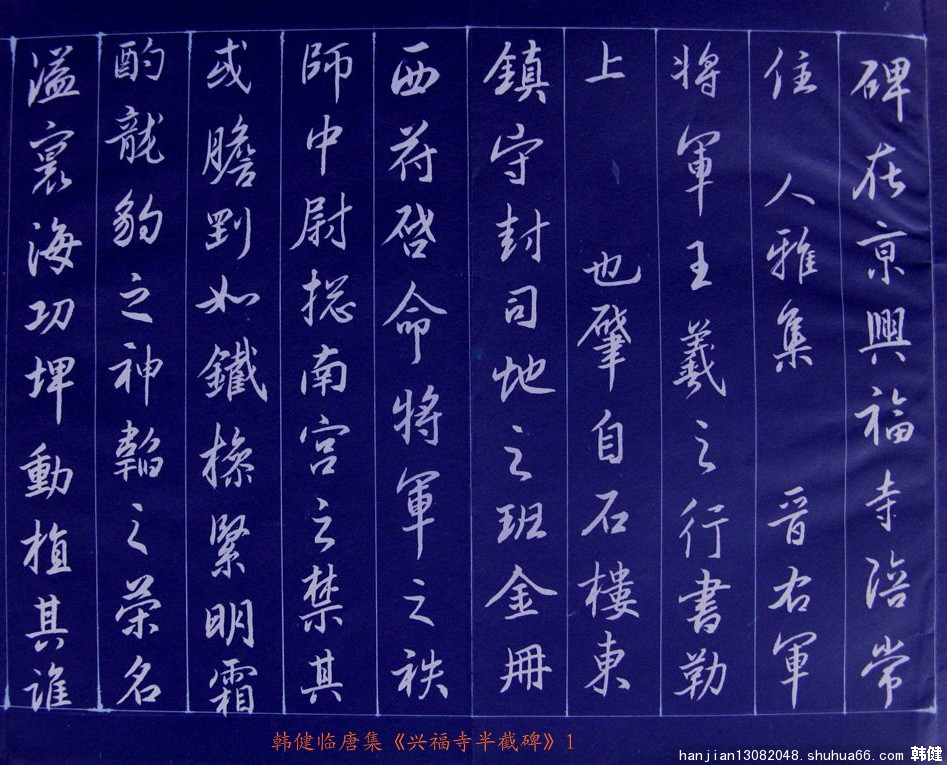 碑在京興福寺陪常
住 人雅集 晋右軍
将軍王羲之行書勒
上 也肇自石樓東
鎮守封司地之班金冊
西符啓命將軍之祑
師中尉捴南宫之禁其
或膽劉如鐵操緊明霜
酌龍豹之神韜之荣名
溢寰海功埤動植其誰
韩健临唐集《兴福寺半截碑》1
hanjian13082048.shuhua66.com 韩健